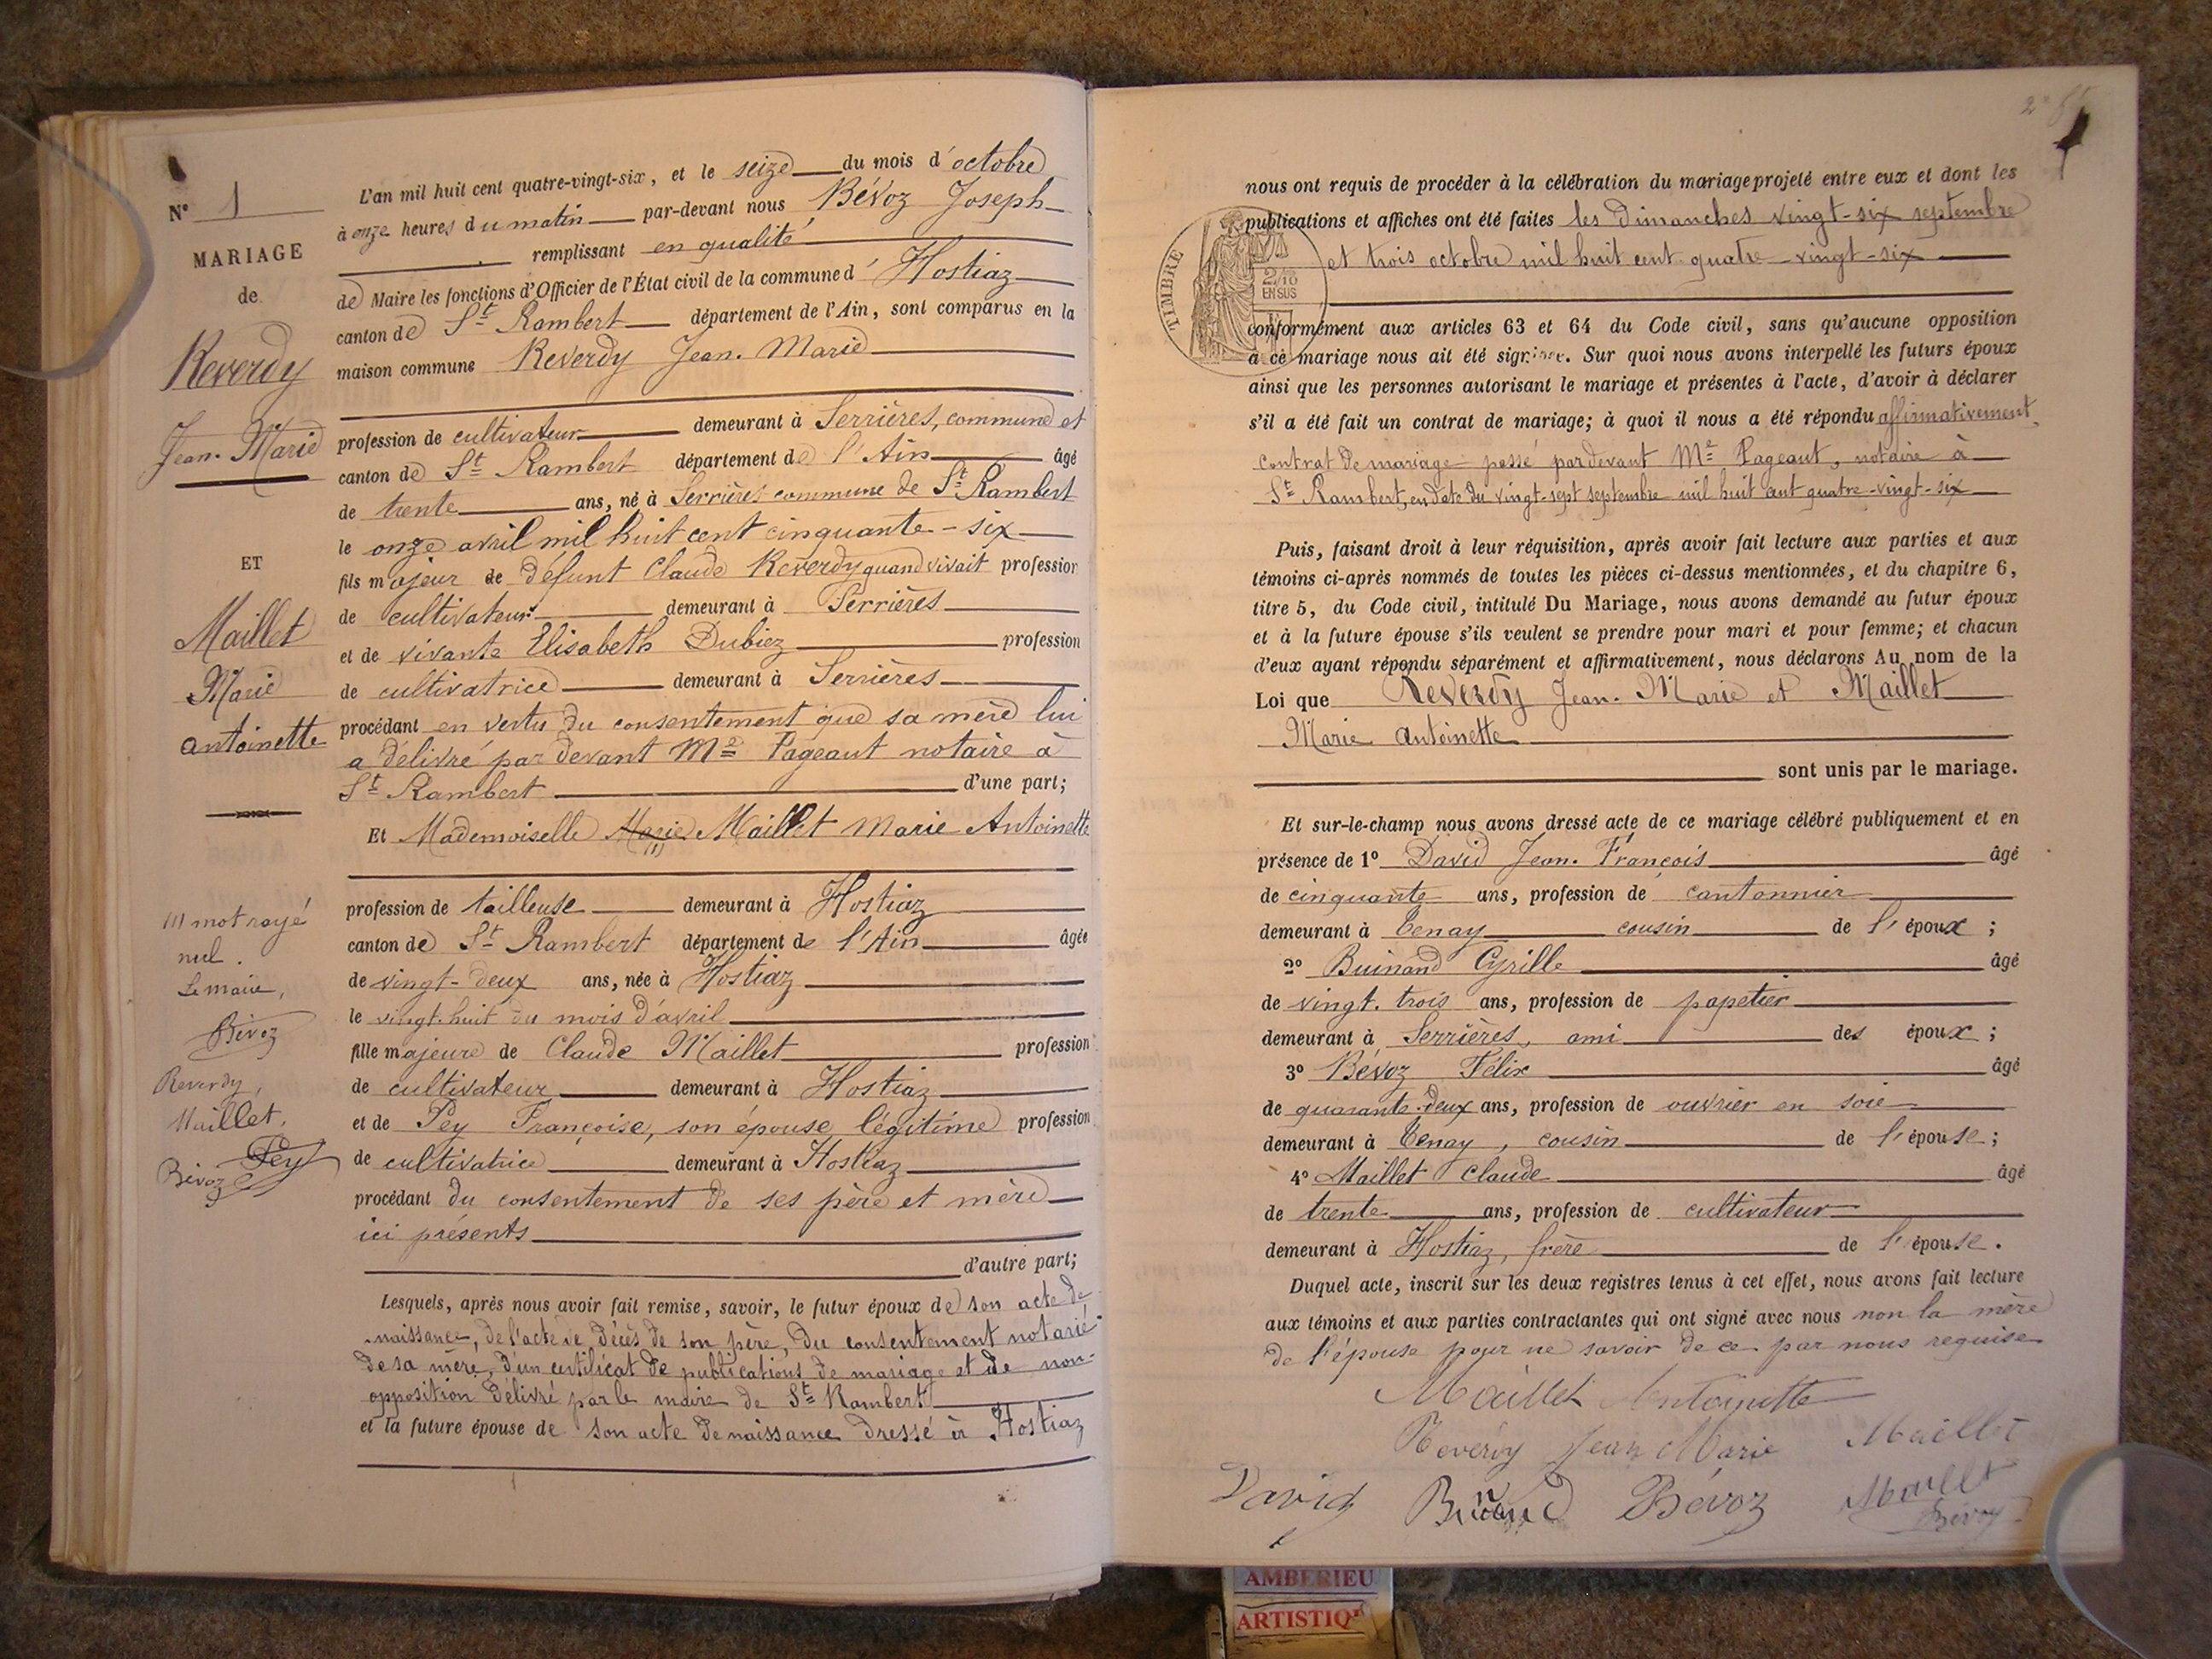 N° 1
MARIAGE
de
Reverdy
Jean. Marie
ET
Maillet
Marie
Antoinette
(1) mot rayé
nul.
Le maire,
Bévoz
Reverdy,
Maillet,
Pey
Bévoz
L'an mil huit cent quatre-vingt-six, et le seize du mois d'octobre
à onze heures du matin par-devant nous Bévoz Joseph
remplissant en qualité
de Maire les fonctions d'Officier de l'État civil de la commune d'Hostiaz
canton de St Rambert département de l'Ain, sont comparus en la
maison commune Reverdy Jean. Marie
profession de cultivateur demeurant à Serrières, commune et
canton de St Rambert département de l'Ain âgé
de trente ans, né à Serrières commune de St Rambert
le onze avril mil huit cent cinquante-six
fils majeur de défunt Claude Reverdy quand vivait profession
de cultivateur demeurant à Serrières
et de vivante Elisabeth Dubiez profession
de cultivatrice demeurant à Serrières
procédant en vertu du consentement que sa mère lui
a délivré par devant Me Pageaut notaire à
St Rambert d'une part;
Et Mademoiselle Marie (1) Maillet Marie Antoinette
profession de tailleuse demeurant à Hostiaz
canton de St Rambert département de l'Ain âgée
de vingt-deux ans, née à Hostiaz
le vingt.huit du mois d'avril
fille majeure de Claude Maillet profession
de cultivateur demeurant à Hostiaz
et de Pey Françoise, son épouse légitime profession
de cultivatrice demeurant à Hostiaz
procédant du consentement de ses père et mère
ici présents
d'autre part;
Lesquels, après nous avoir fait remise, savoir, le futur époux de son acte de
naissance, de l'acte de décès de son père, du consentement notarié
de sa mère, d'un certificat de publications de mariage et de non-
opposition délivré par le maire de St Rambert
et la future épouse de son acte de naissance dressé à Hostiaz
nous ont requis de procéder à la célébration du mariage projeté entre eux et dont les
publications et affiches ont été faites les dimanches vingt-six septembre
et trois octobre mil huit cent quatre-vingt-six
TIMBRE
2/10
EN SUS
conformément aux articles 63 et 64 du Code civil, sans qu'aucune opposition
à ce mariage nous ait été signifiée. Sur quoi nous avons interpellé les futurs époux
ainsi que les personnes autorisant le mariage et présentes à l'acte, d'avoir à déclarer
s'il a été fait un contrat de mariage; à quoi il nous a été répondu affirmativement,
contrat de mariage passé par devant Me Pageaut, notaire à
St Rambert, en date du vingt-sept septembre mil huit cent quatre-vingt-six
Puis, faisant droit à leur réquisition, après avoir fait lecture aux parties et aux
témoins ci-après nommés de toutes les pièces ci-dessus mentionnées, et du chapitre 6,
titre 5, du Code civil, intitulé Du Mariage, nous avons demandé au futur époux
et à la future épouse s'ils veulent se prendre pour mari et pour femme; et chacun
d'eux ayant répondu séparément et affirmativement, nous déclarons Au nom de la
Loi que Reverdy Jean. Marie et Maillet
Marie Antoinette
sont unis par le mariage.
Et sur-le-champ nous avons dressé acte de ce mariage célébré publiquement et en
présence de 1° David Jean. François âgé
de cinquante ans, profession de cantonnier
demeurant à Tenay cousin de l'époux;
2° Buinand Cyrille âgé
de vingt. trois ans, profession de papetier
demeurant à Serrières, ami des époux;
3° Bévoz Félix âgé
de quarante.deux ans, profession de ouvrier en soie
demeurant à Tenay, cousin de l'épouse;
4° Maillet Claude âgé
de trente ans, profession de cultivateur
demeurant à Hostiaz, frère de l'épouse.
Duquel acte, inscrit sur les deux registres tenus à cet effet, nous avons fait lecture
aux témoins et aux parties contractantes qui ont signé avec nous non la mère
de l'épouse pour ne savoir de ce par nous requise
Maillet Antoinette
Reverdy Jean Marie Maillet
David Buinand Bévoz Maillet
Bévoz
AMBERIEU
ARTISTIQ